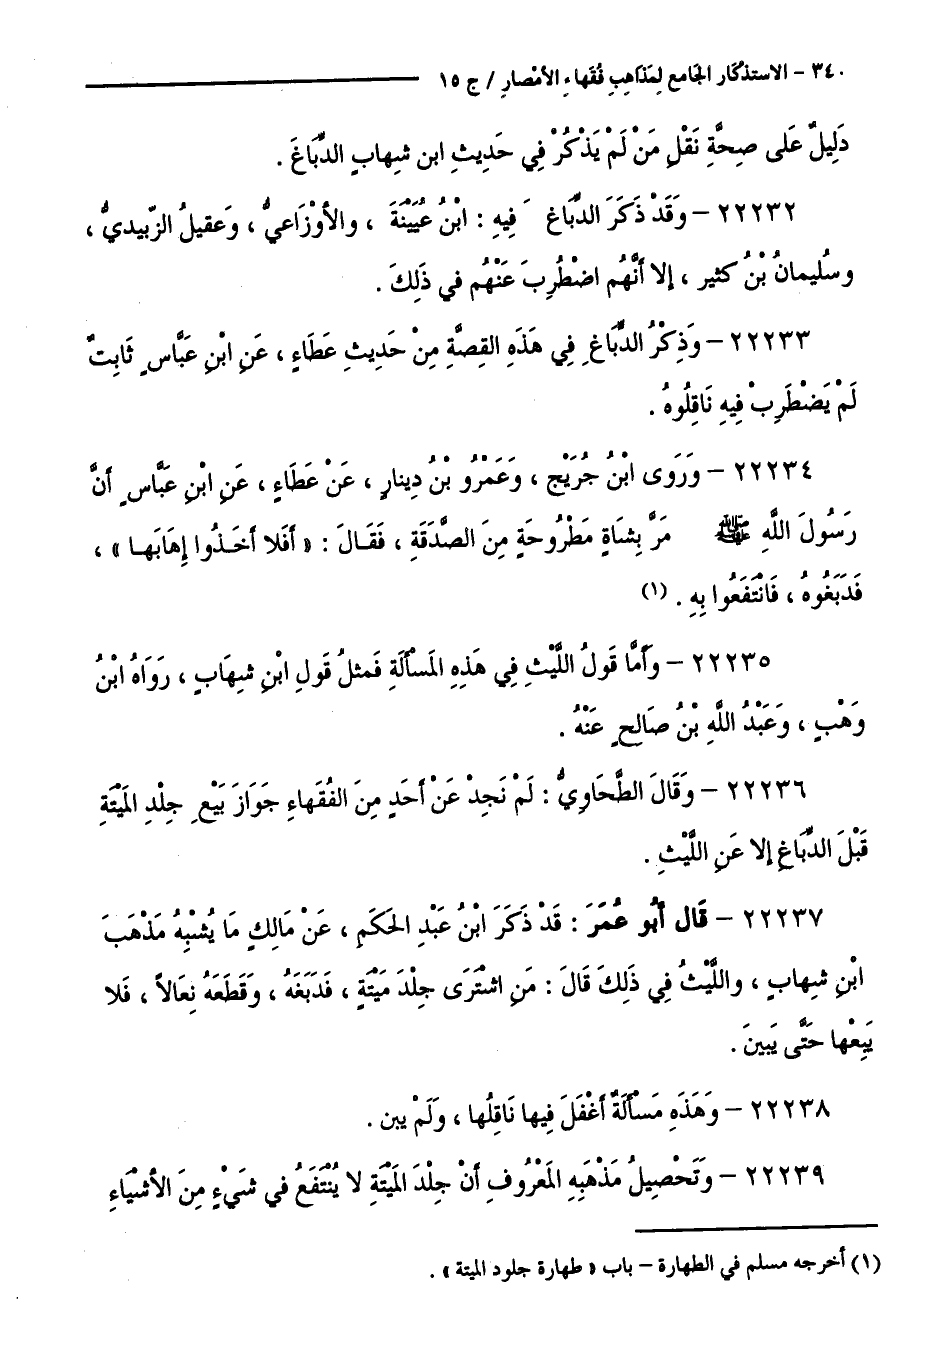 ٣٤٠ - الاستذكار الجامع لمذاهب فقهاء الأمصار / ج ١٥
دَلِيلٌ عَلى صِحَّةِ نَقْلِ مَنْ لَمْ يَذْكُرْ فِي حَدِيثِ ابن شِهابٍ الدِّبَاغَ .
٢٢٢٣٢ - وَقَدْ ذَكَرَ الدِّبَاغَ فِيهِ : ابْنُ عُيَيْنَةَ ، والأوْزَاعيُّ ، وَعقيلُ الزّبيديُّ ،
وسُليمانُ بْنُ كثير ، إلا أنَّهُم اضْطُرِبَ عَنْهُم في ذَلِكَ .
٢٢٢٣٣ - وَذِكْرُ الدِّبَاغِ فِي هَذَهِ القِصَّةِ مِنْ حَدِيثِ عَطَاءٍ ، عَنِ ابْنِ عَبَّاسٍ ثَابِتٌ
لَمْ يَضْطَرِبْ فِيهِ نَاقِلُوهُ .
٢٢٢٣٤ - وَرَوى ابْنُ جُرَيْجٍ ، وَعَمْرُو بْنُ دِينارٍ ، عَنْ عَطَاءٍ ، عَنِ ابْنِ عَبَّاسٍ أنَّ
رَسُولَ اللَّهِ ﷺ مَرَّ بِشَاةٍ مَطْرُوحَةٍ مِنَ الصَّدَقَةِ ، فَقَالَ : « أفَلا أخَذُوا إِهَابَها » ،
فَدَبَغُوهُ ، فَانْتَفَعُوا بِهِ . (١)
٢٢٢٣٥ - وأمَّا قَولُ اللَّيْثِ فِي هَذِهِ المَسْألَةِ فَمثلُ قَولِ ابْنِ شِهَابٍ ، رَوَاهُ ابْنُ
وَهْبٍ ، وَعَبْدُ اللَّهِ بْنُ صَالِحٍ عَنْهُ .
٢٢٢٣٦ - وَقَالَ الطَّحَاوِيُّ : لَمْ نَجِدْ عَنْ أحَدٍ مِنَ الفُقَهاءِ جَوَازَ بَيْعِ جِلْدِ المَيْتَةِ
قَبْلَ الدِّبَاغِ إلا عَنِ اللَّيْثِ .
٢٢٢٣٧ - قَال أبُو عُمَرَ : قَدْ ذَكَرَ ابْنُ عَبْدِ الحَكَمِ ، عَنْ مَالِكٍ مَا يُشْبِهُ مَذْهَبَ
ابْنِ شِهابٍ ، واللَّيْثُ فِي ذَلِكَ قَالَ : مَنِ اشْتَرَى جِلْدَ مَيْتَةٍ ، فَدَبَغَهُ ، وَقَطَعَهُ نِعَالاً ، فَلا
يَبِعْها حَتَّى يَبينَ .
٢٢٢٣٨ - وَهَذَهِ مَسْألَةٌ أغْفَلَ فِيها نَاقِلُها ، وَلَمْ يبن .
٢٢٢٣٩ - وَتَحْصِيلُ مَذْهَبِهِ المَعْرُوفِ أنْ جِلْدَ المَيْتَةِ لا يُنْتَفَعُ في شَيْءٍ مِنَ الأشْيَاءِ
(١) أخرجه مسلم في الطهارة - باب « طهارة جلود الميتة » .